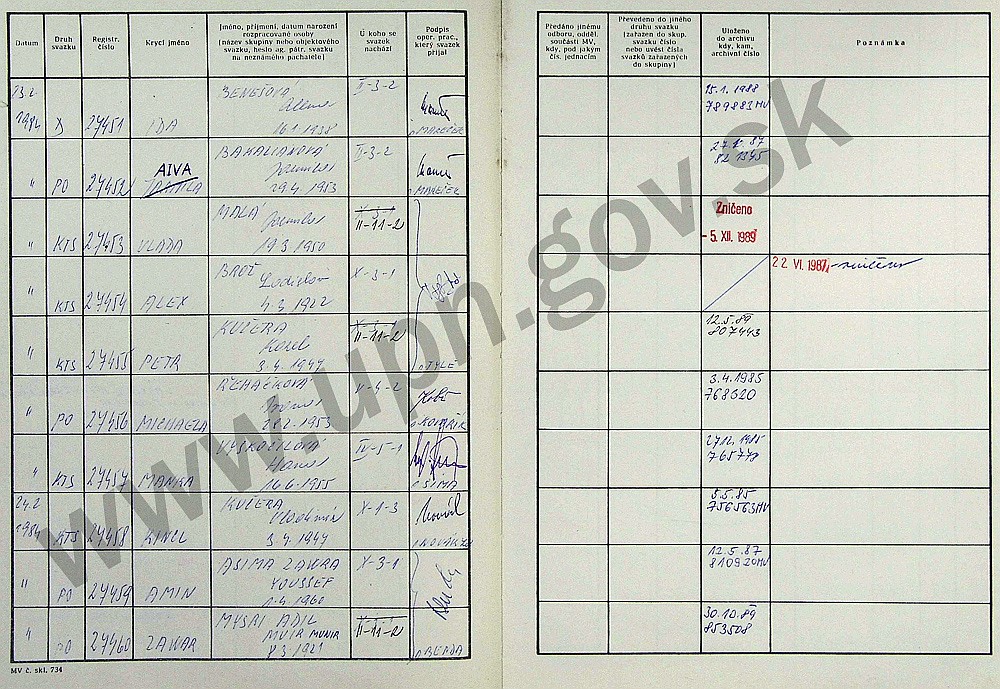 Datum
Druh svazku
Registr. číslo
Krycí jméno
Jméno, příjmení, datum narození rozpracované osoby (název skupiny nebo objektového svazku, heslo ag. pátr. svazku na neznámého pachatele)
U koho se svazek nachází
Podpis oper. prac., který svazek přijal
Předáno jinému odboru, odděl. součásti MV, kdy, pod jakým čís. jednacím
Převedeno do jiného druhu svazku (zařazen do skup. svazku číslo nebo uvést čísla svazků zařazených do skupiny)
Uloženo do archivu kdy, kam, archivní číslo
Poznámka
23.2. 1984 27451 IDA BENEŠOVÁ 16.1.1938 II-3-2 MAREČEK 15.1.1988 789883MV
" PO 27452 AIVA BAKALIANOVÁ 29.4.1953 II-3-2 MAREČEK 27.1.87
" KTS 27453 VLADA MALÁ 19.3.1950 X-3-1 II-11-2 Zničeno - 5. XII. 1989
" KTS 27454 ALEX BROŽ Ladislav 4.3.1922 X-3-1 22. VI. 1987 - zničeno
" KTS 27455 PETR KUČERA Karel 3.4.1947 II-11-2 12.5.89 807443
" PO 27456 MICHAELA 28.2.1953 3.4.1985 768620
" KTS 27457 MANKA VYSKOČILOVÁ 16.6.1955 IV-5-1 ŠIMA
24.2. 1984 KTS 27458 KINCL KUČERA Vladimír 3.4.1947 X-1-3 5.5.85 756563MV
" PO 27459 AMIN ASIMA ZAWRA YOUSSEF 1.4.1960 X-3-1 12.5.87 810920MV
" PO 27460 ZAWAR MYSRI ADIL MUIR MUNIR 8.3.1921 II-11-2 BERDA 30.10.89 853508
MV č. skl. 734
www.upn.gov.sk